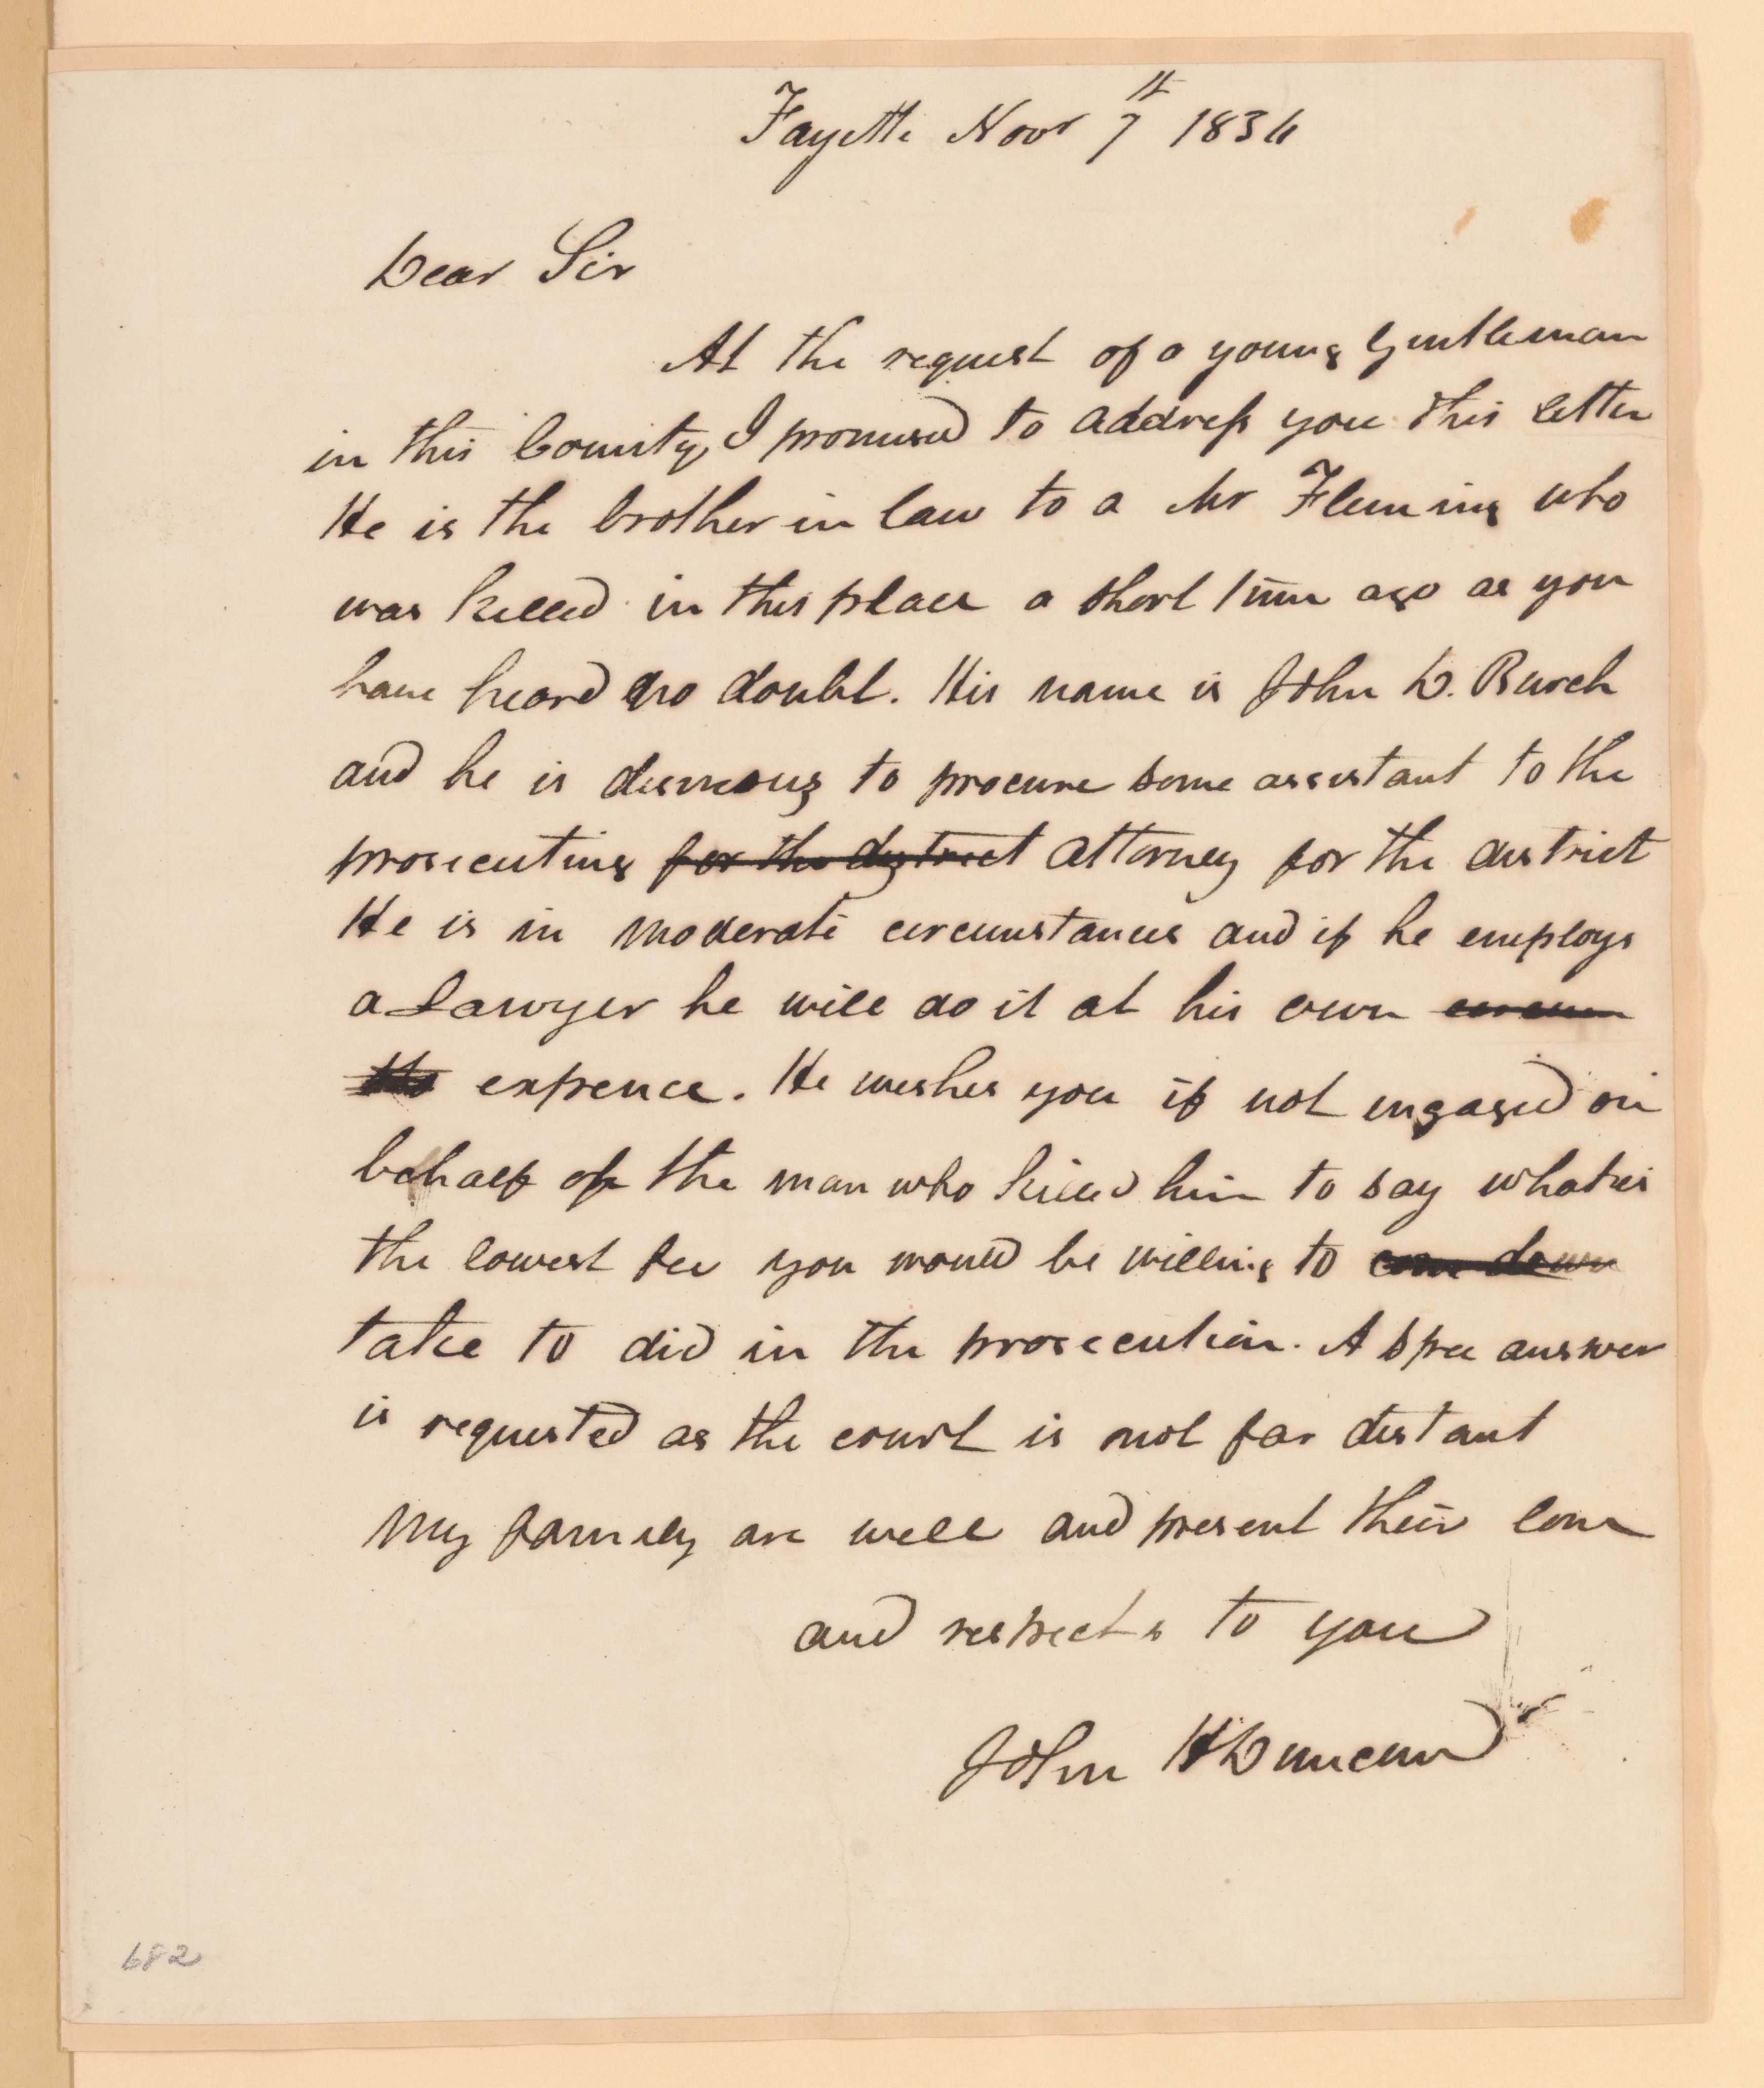 Fayette Novr 7th 1834
Dear Sir
At the request of a young Gentleman
in this County, I promised to address you this letter
He is the brother in law to a Mr Fleming who
was killed in this place a short time ago as you
have heard no doubt. His name is John D. Burch
and he is desireous to procure some assistant to the
prosecuting for the district attorney for the district
He is in moderate circumstances and if he employs
a Lawyer he will do it at his own
expence. He wishes you if not engaged on
behalf of the man who killed him to say what is
the lowest fee you would be willing to come down
take to did in the prosecution. A answer
is requested as the court is not far distant
My family are well and present their love
and respects to you
John H Duncan
682